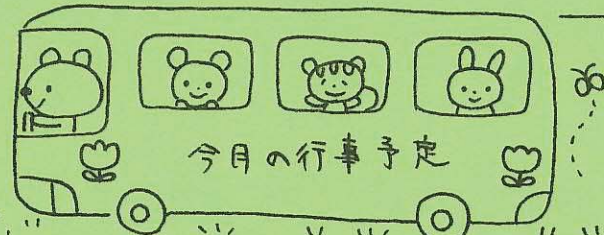 今月の行事予定